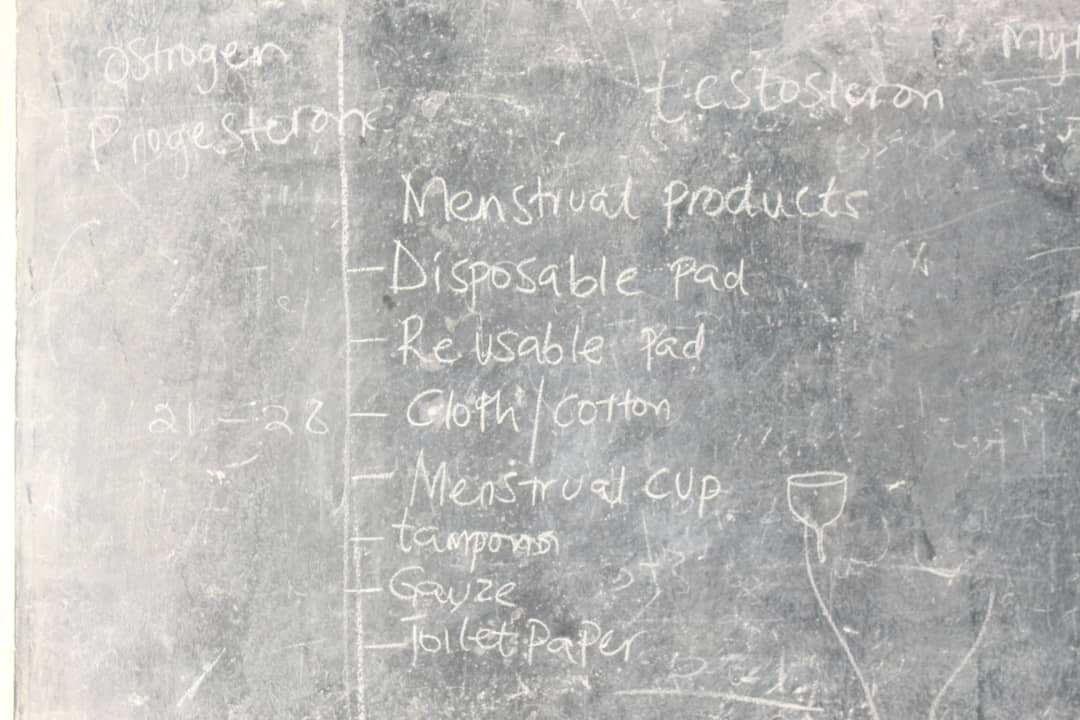 ostrogen
Progesterone
21 - 28
testosteron
Menstrual products
- Disposable pad
- Reusable pad
- Cloth/cotton
- Menstrual cup
- tampons
- Gauze
- Toilet Paper